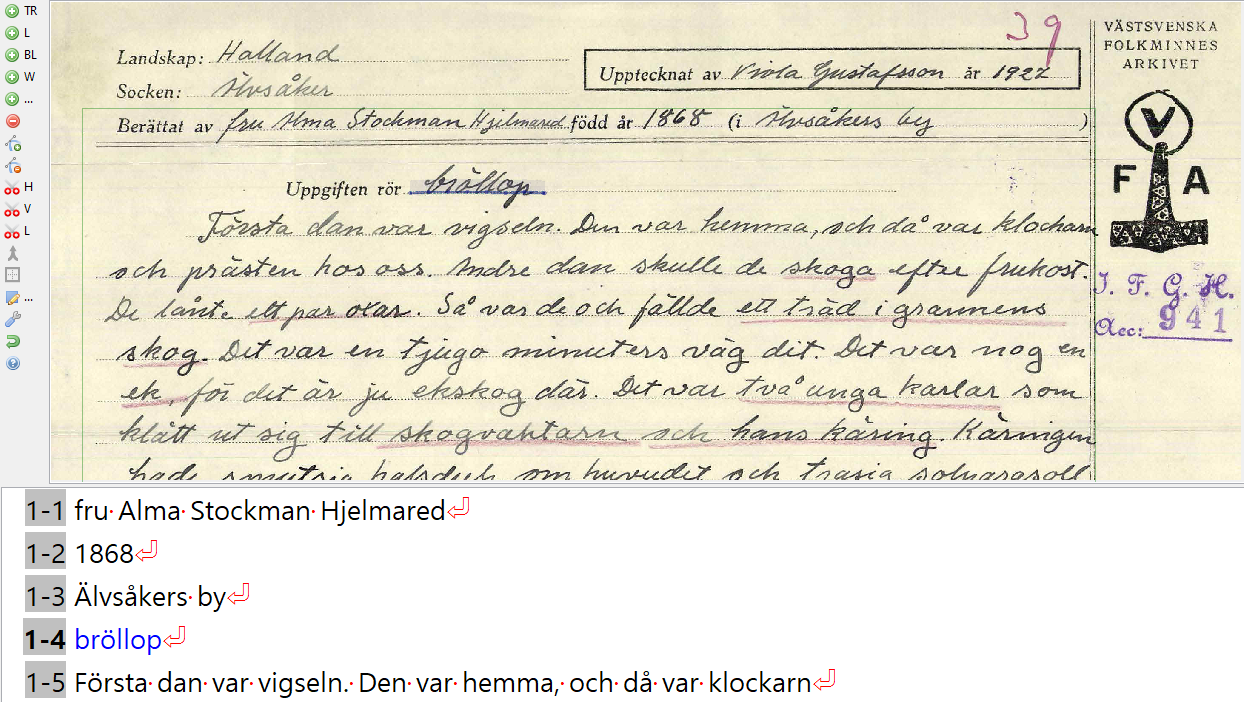 TR
L
BL
W
...
H
V
L
...
39
VÄSTSVENSKA
FOLKMINNES
ARKIVET
V
F A
I. F. G. H.
Acc: 941
Landskap: Halland
Upptecknat av Viola Gustafsson år 1927
Socken: Älvsåker
Berättat av fru Alma Stockman Hjelmared född år 1868 (i Älvsåkers by )
Uppgiften rör bröllop
Första dan var vigseln. Den var hemma, och då var klockarn
och prästen hos oss. Andre dan skulle de skoga efter frukost.
De lånte ett par oxar. Så var de och fällde ett träd i grannens
skog. Det var en tjugo minuters väg dit. Det var nog en
ek, för det är ju ekskog där. Det var två unga karlar som
klätt ut sig till skogvaktarn och hans käring. Käringen
hade smutsig halsduk om huvudet och trasig solparasoll
1-1 fru Alma Stockman Hjelmared
1-2 1868
1-3 Älvsåkers by
1-4 bröllop
1-5 Första dan var vigseln. Den var hemma, och då var klockarn